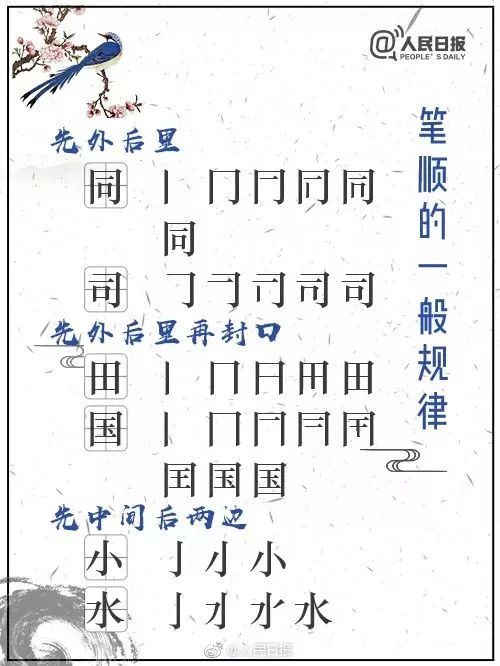 @人民日报
PEOPLE'S DAILY
笔顺的一般规律
先外后里
同 丨 冂 冂 同 同
同
司 𠃌 司 司 司 司
先外后里再封口
田 丨 冂 日 田 田
国 丨 冂 冂 冃 国
国 国 国
先中间后两边
小 亅 小 小
水 亅 水 水 水
@人民日报